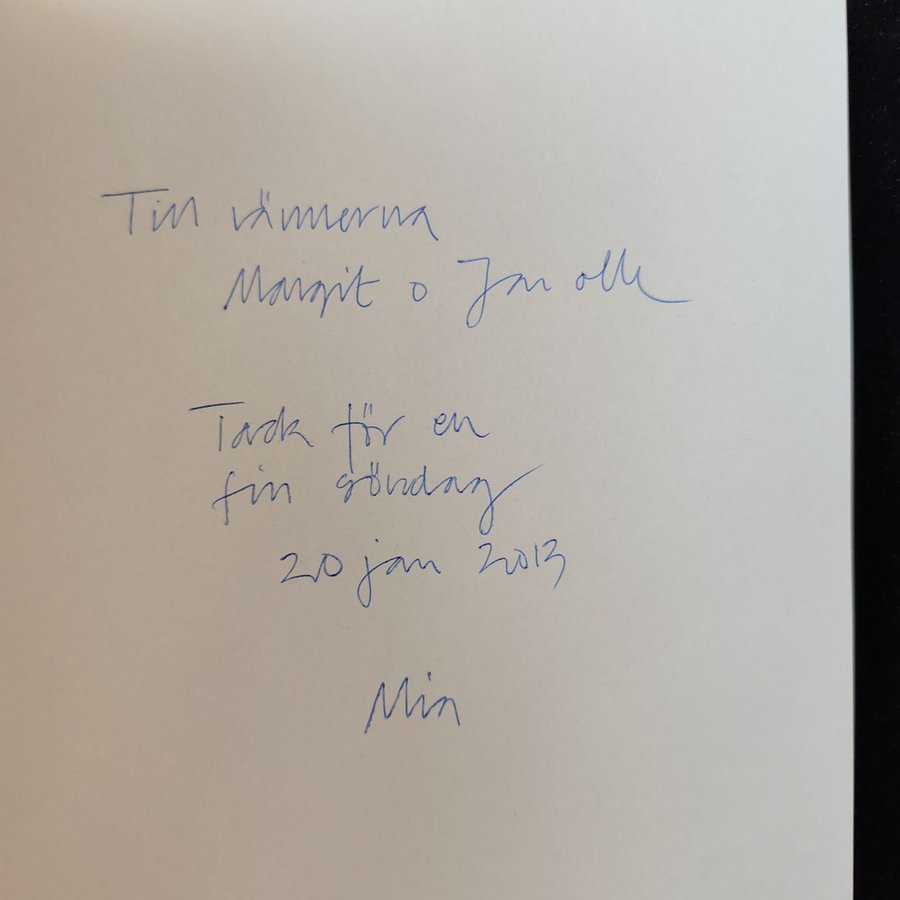 Till vännerna
Margit o Jan olle
Tack för en
fin söndag
20 jan 2013
Mia